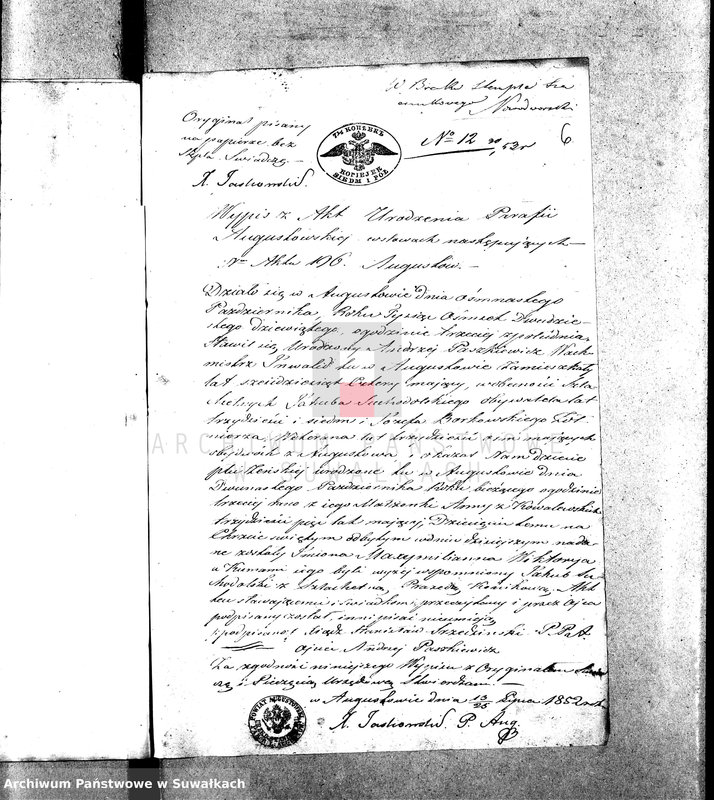 W Brak Stempla Sza
cunkowego Nowodworski
Oryginał pisany
na papierze bez
Stpla Świadczę.—
A. Jastkowski.
7½ КОПѢЕКЪ
KOPIEJEK
SIEDM I PÓŁ
No 12 52r
6
Wypis z Akt Urodzenia Parafii
Augustowskiej w słowach następujących
Nr Aktu 196. Augustów.—
Działo się w Augustowie dnia ośmnastego
Października, Roku Tysiąc Ośmset Dwudzie-
stego dziewiątego, o godzinie trzeciej z południa,
Stawił się Urodzony Andrzej Paszkiewicz Wach-
mistrz Inwalid tu w Augustowie Zamieszkały
lat sześćdziesiąt cztery mający, w obecności Szla-
chetnych Jakuba Suchodolskiego obywatela lat
trzydzieści i siedm i Józefa Borkowskiego Żoł-
nierza Weterana lat trzydzieści siedm mających
obydwóch z Augustowa i okazał Nam dziecię
płci Żeńskiej urodzone tu w Augustowie dnia
Dwunastego Października Roku bieżącego o godzinie
trzeciej rano z iego Małżonki Anny z Kowalewskich
trzydzieści pięć lat mającej; Dziecięciu temu na
Chrzcie świętym odbytym w dniu dzisiejszym nada-
ne zostały Imiona Maxymilianna Wiktorya
a Kumami iego byli wyżej wspomniony Jakub Su-
chodolski z Szlachetną Praxedą Konikową, Akt
ten stawającemu i świadkom przeczytany i przez Ojca
podpisany został, inni pisać nieumieją
podpisano: Xiądz Stanisław Szczesiński P. P. A.
ojciec Andrzej Paszkiewicz
Za zgodność niniejszego Wypisu z Oryginałem
i Pieczęcią Urzędową Stwierdzam.—
w Augustowie dnia 13/25 Lipca 1852 roku
A. Jastkowski P. Aug.
ARCHIWUM PAŃSTWOWE
W SUWAŁKACH
Archiwum Państwowe w Suwałkach